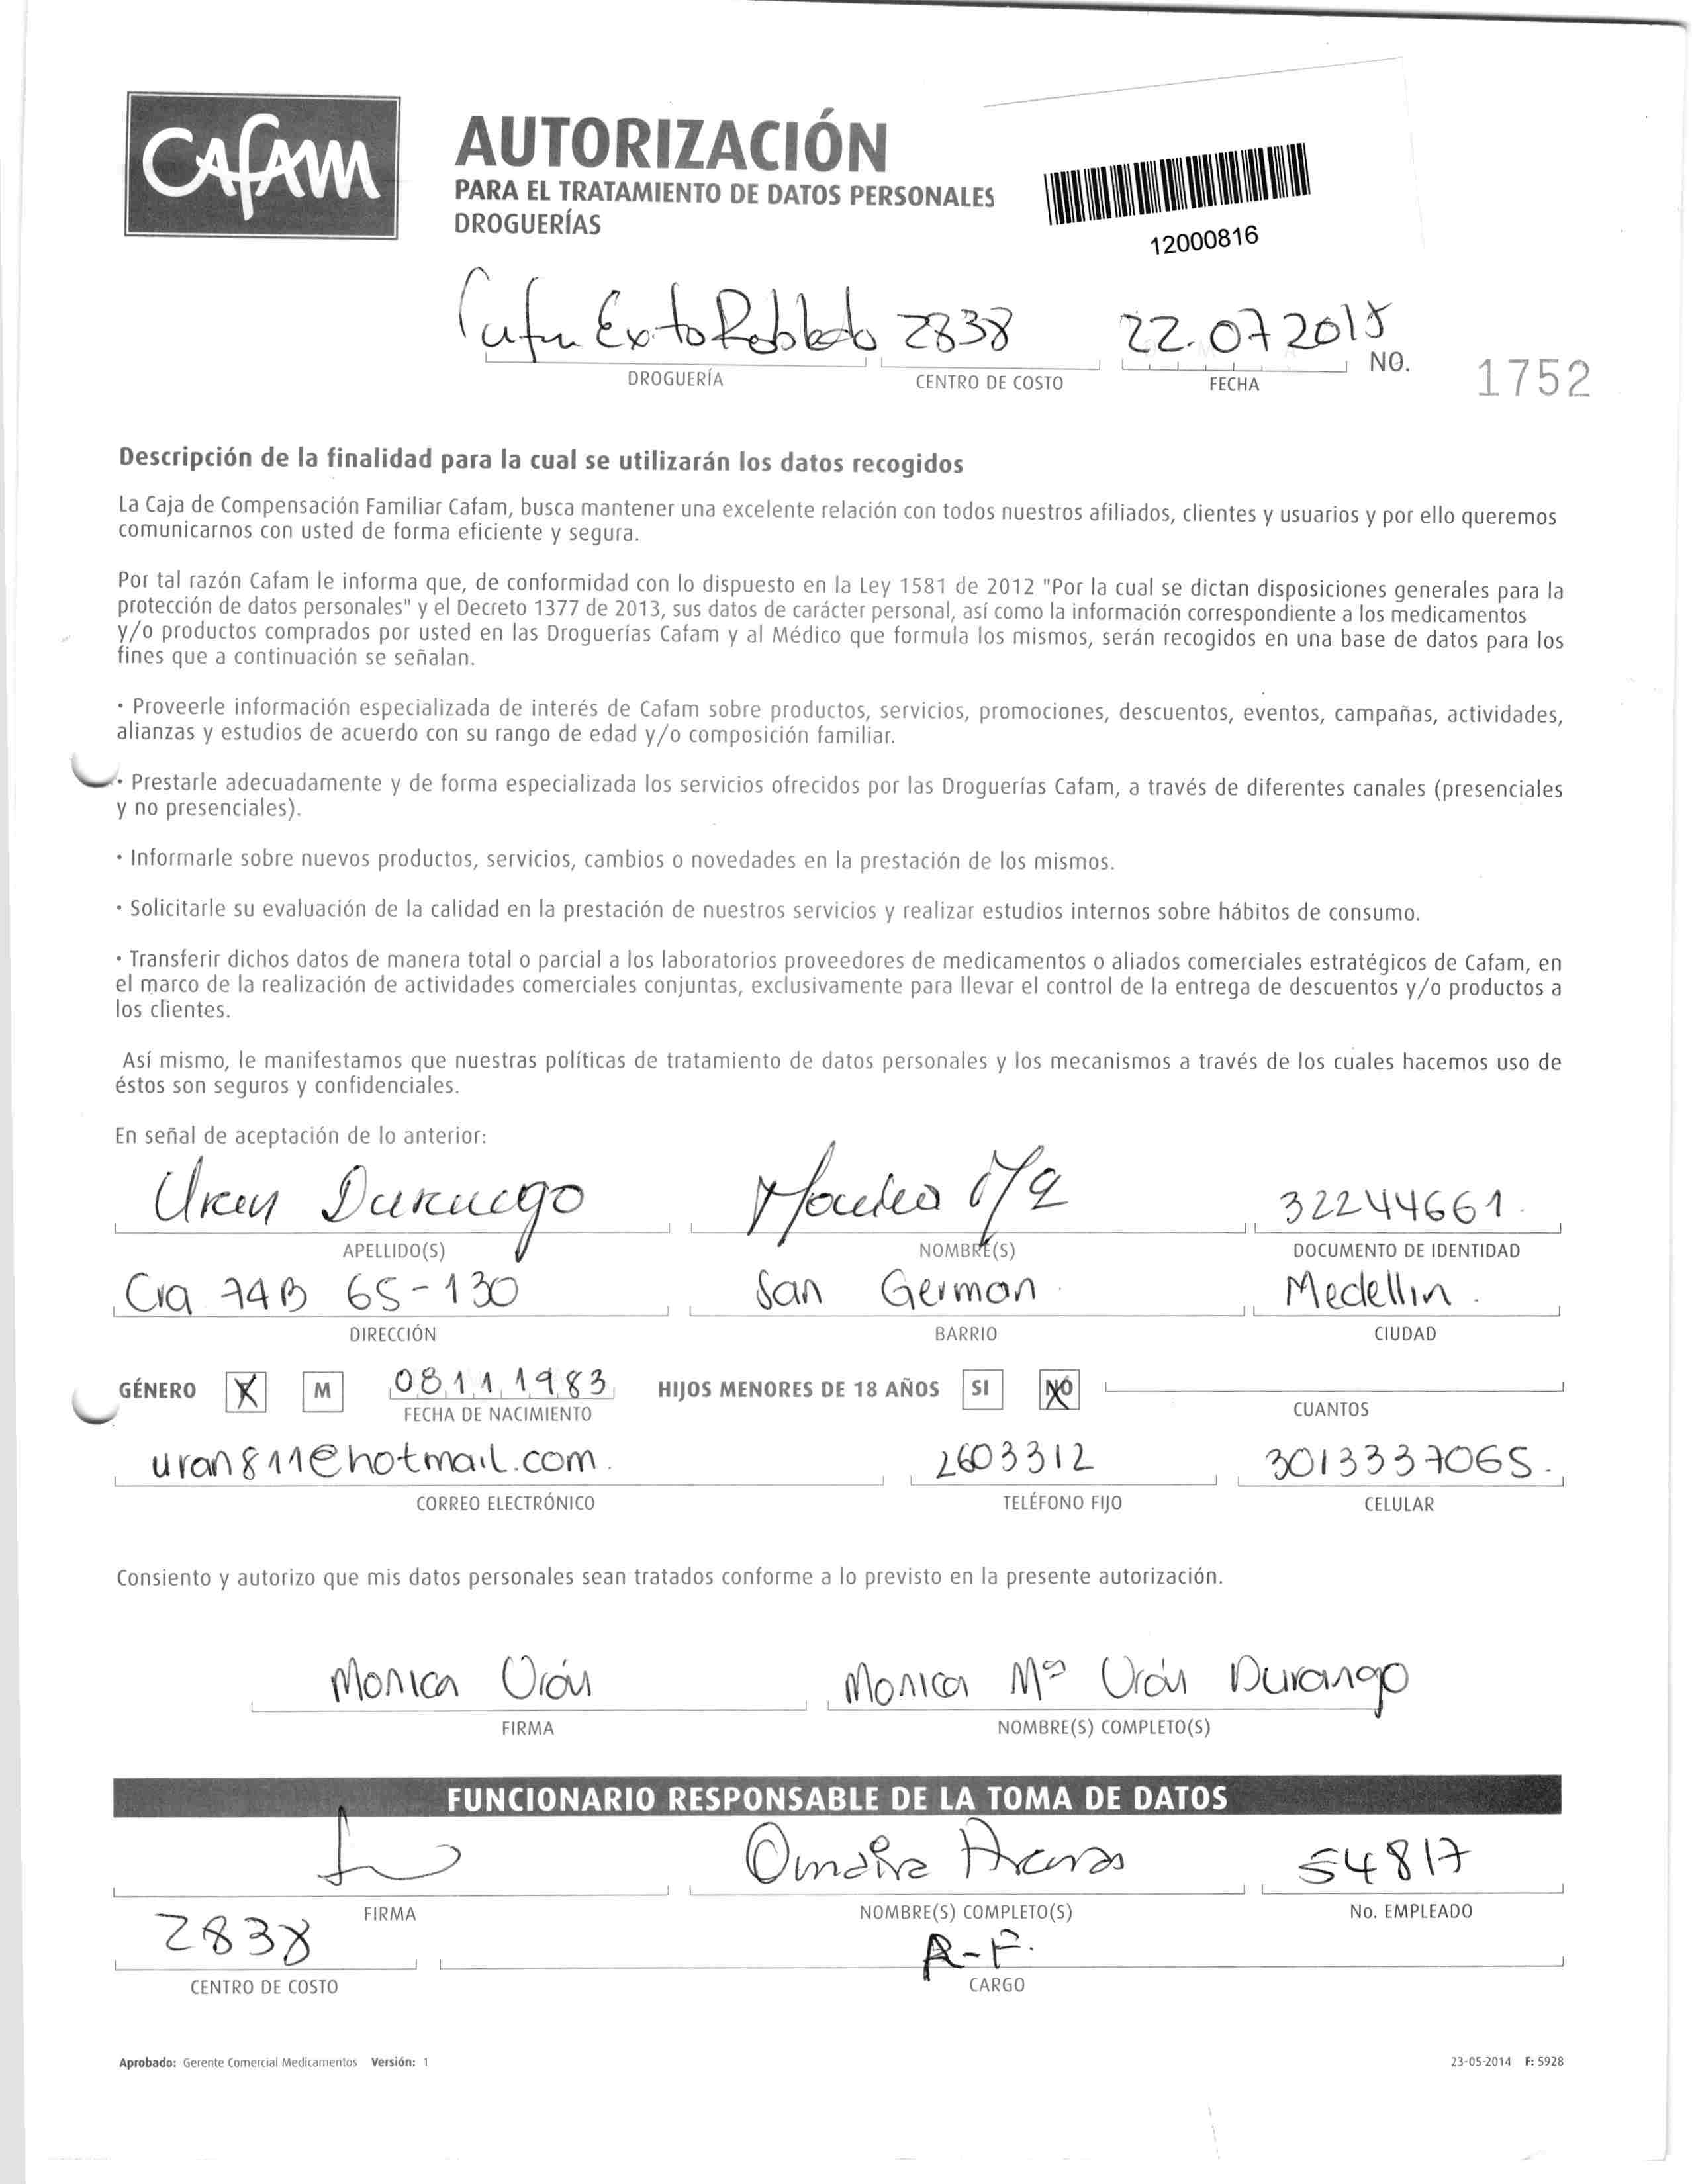 CAFAM
AUTORIZACIÓN
PARA EL TRATAMIENTO DE DATOS PERSONALES
DROGUERÍAS
12000816
Exito Robledo 2838 22.07 2015
DROGUERÍA CENTRO DE COSTO FECHA NO. 1752
Descripción de la finalidad para la cual se utilizarán los datos recogidos
La Caja de Compensación Familiar Cafam, busca mantener una excelente relación con todos nuestros afiliados, clientes y usuarios y por ello queremos
comunicarnos con usted de forma eficiente y segura.
Por tal razón Cafam le informa que, de conformidad con lo dispuesto en la Ley 1581 de 2012 "Por la cual se dictan disposiciones generales para la
protección de datos personales" y el Decreto 1377 de 2013, sus datos de carácter personal, así como la información correspondiente a los medicamentos
y/o productos comprados por usted en las Droguerías Cafam y al Médico que formula los mismos, serán recogidos en una base de datos para los
fines que a continuación se señalan.
· Proveerle información especializada de interés de Cafam sobre productos, servicios, promociones, descuentos, eventos, campañas, actividades,
alianzas y estudios de acuerdo con su rango de edad y/o composición familiar.
· Prestarle adecuadamente y de forma especializada los servicios ofrecidos por las Droguerías Cafam, a través de diferentes canales (presenciales
y no presenciales).
· Informarle sobre nuevos productos, servicios, cambios o novedades en la prestación de los mismos.
· Solicitarle su evaluación de la calidad en la prestación de nuestros servicios y realizar estudios internos sobre hábitos de consumo.
· Transferir dichos datos de manera total o parcial a los laboratorios proveedores de medicamentos o aliados comerciales estratégicos de Cafam, en
el marco de la realización de actividades comerciales conjuntas, exclusivamente para llevar el control de la entrega de descuentos y/o productos a
los clientes.
Así mismo, le manifestamos que nuestras políticas de tratamiento de datos personales y los mecanismos a través de los cuales hacemos uso de
éstos son seguros y confidenciales.
En señal de aceptación de lo anterior:
Uran Durango 32244661.
APELLIDO(S) NOMBRE(S) DOCUMENTO DE IDENTIDAD
Cra 74B 65-130 San German Medellin.
DIRECCIÓN BARRIO CIUDAD
GÉNERO X M 08 11 1983 HIJOS MENORES DE 18 AÑOS SI NO
FECHA DE NACIMIENTO CUANTOS
uran811@hotmail.com. 2603312 3013337065.
CORREO ELECTRÓNICO TELÉFONO FIJO CELULAR
Consiento y autorizo que mis datos personales sean tratados conforme a lo previsto en la presente autorización.
Monica Urán Monica Mª Urán Durango
FIRMA NOMBRE(S) COMPLETO(S)
FUNCIONARIO RESPONSABLE DE LA TOMA DE DATOS
Omaira 54817
FIRMA NOMBRE(S) COMPLETO(S) No. EMPLEADO
2838 R-F.
CENTRO DE COSTO CARGO
Aprobado: Gerente Comercial Medicamentos Versión: 1 23-05-2014 F: 5928